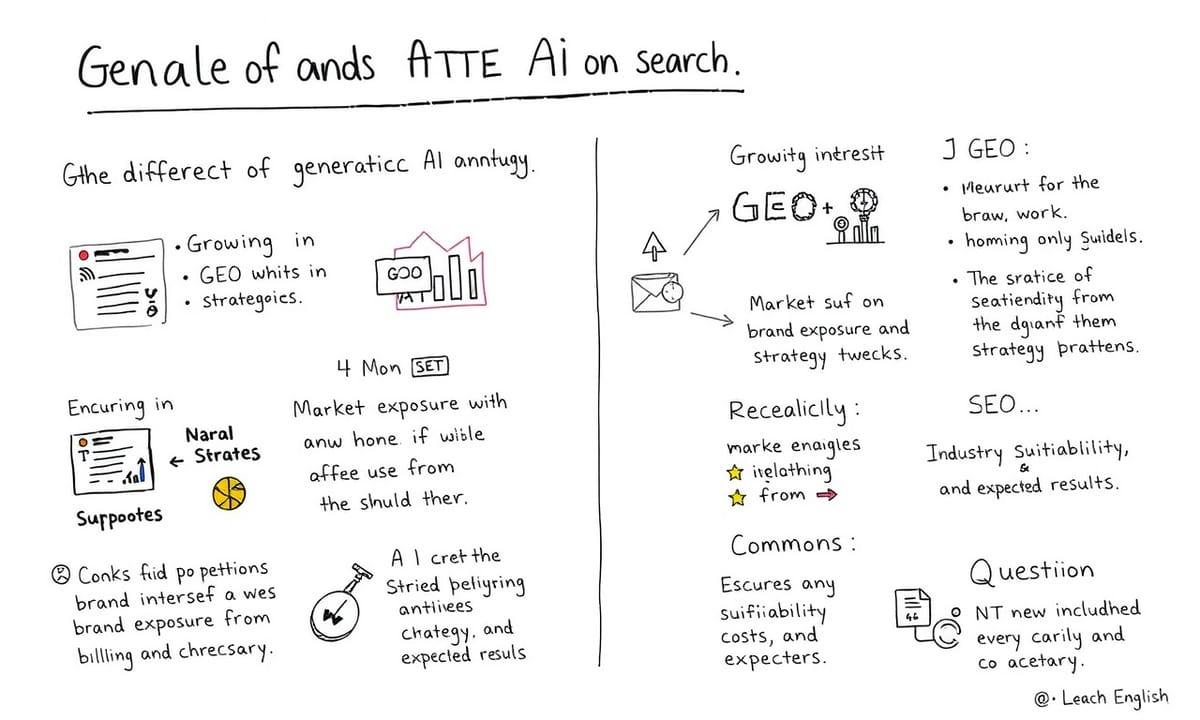 Genale of ands ATTE Ai on search.
Gthe differect of generaticc AI anntugy.
• Growing in
• GEO whits in
• strategoics.
GOO
4 Mon SET
Market exposure with
anw hone. if wible
affee use from
the slnuld ther.
Encuring in
T
Naral
← Strates
Surpootes
Conks fiid po pettions
brand intersef a wes
brand exposure from
billling and chrecsary.
A I cret the
Stried peliyring
antliiees
chategy, and
expected resuls
Growitg intrestt
GEO+
Market suf on
brand exposure and
strategy twecks.
J GEO :
• Meururt for the
braw, work.
• homing only Suidels.
• The sratice of
seatiendity from
the dgianf them
strategy prattens.
Recealiclly :
marke enaigles
☆ itelathing
☆ from →
SEO...
Industry Suitiablility,
&
and expected results.
Commons :
Escures any
suifiiability
costs, and
expecters.
Questiion
NT new includhed
every carily and
co acetary.
@• Leach English